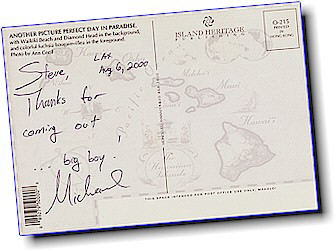 ANOTHER PICTURE PERFECT DAY IN PARADISE,
with Waikiki Beach and Diamond Head in the background,
and colorful fuchsia bougainvillea in the foreground.
Photo by Ann Cecil
ISLAND HERITAGE
O-215
PRINTED IN
HONG KONG
Steve,
LAX
Aug 6, 2000
Thanks for
coming out,
... big boy!
Michael
THIS SPACE INTENDED FOR POST OFFICE USE ONLY, MAHALO!